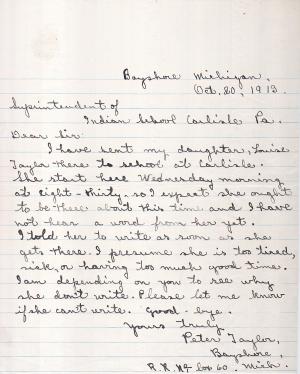 Bayshore Michigan,
Oct. 20, 1913.
Suprintendent of
Indian School Carlisle Pa.
Dear Sir:
I have sent my daughter, Louise
Taylor there to school at Carlisle.
She start here Wednesday morning
at eight-thirty. so I expect she ought
to be there about this time and I have
not hear a word from her yet.
I told her to write as soon as she
gets there. I presume she is too tired,
sick, or having too much good time.
I am depending on you to see why
she don't write. Please let me know
if she can't write. Good-bye.
Yours Truly
Peter Taylor,
Bayshore,
Mich.